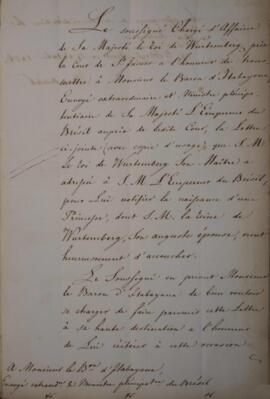 Le soussigné Chargé d'Affaires
de Sa Majesté le Roi de Wurtemberg, près
la Cour de St James a l'honneur de trans
mettre à Monsieur le Baron d'Itabayana
Envoyé extraordinaire et Ministre plénipo
tentiaire de Sa Majesté L'Empereur du
Brésil auprès de ladite Cour, la Lettre
ci-jointe (avec copie d'usage) que S. M.
Le Roi de Wurtemberg Son Maître a
adressée à S. M. L'Empereur du Brésil,
pour Lui notifier la naissance d'une
Princesse, dont S. M. la Reine de
Wurtemberg, Son auguste épouse, vient
heureusement d'accoucher.
Le Soussigné en priant Monsieur
le Baron d'Itabayana de bien vouloir
se charger de faire parvenir cette Lettre
à sa haute destination a l'honneur
de Lui réitérer à cette occasion
A Monsieur le Bon d'Itabayana,
Envoyé extraord. & Ministre plénipot. du Brésil